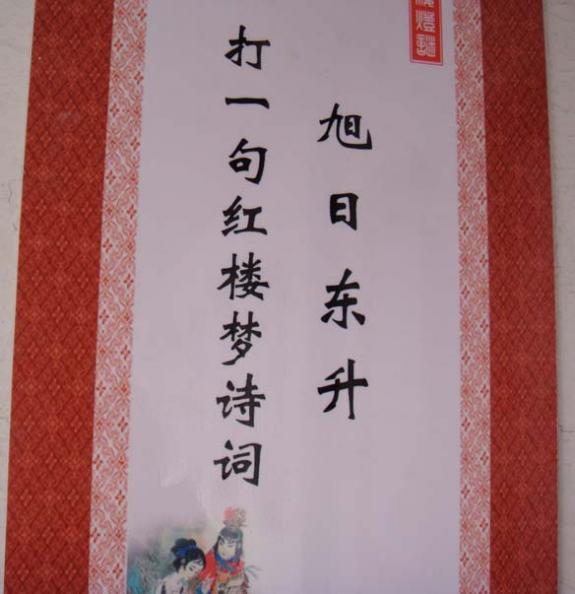 燈謎
旭日东升
打一句红楼梦诗词